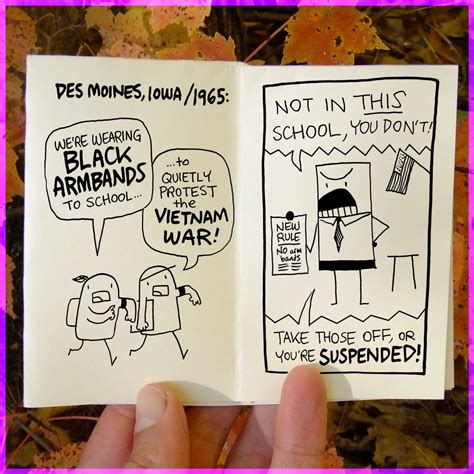 DES MOINES, IOWA/1965:
WE'RE WEARING
BLACK
ARMBANDS
TO SCHOOL...
...to
QUIETLY
PROTEST
the
VIETNAM
WAR!
NOT IN THIS
SCHOOL, YOU DON'T!
NEW
RULE
No arm
bands
TAKE THOSE OFF, OR
YOU'RE SUSPENDED!